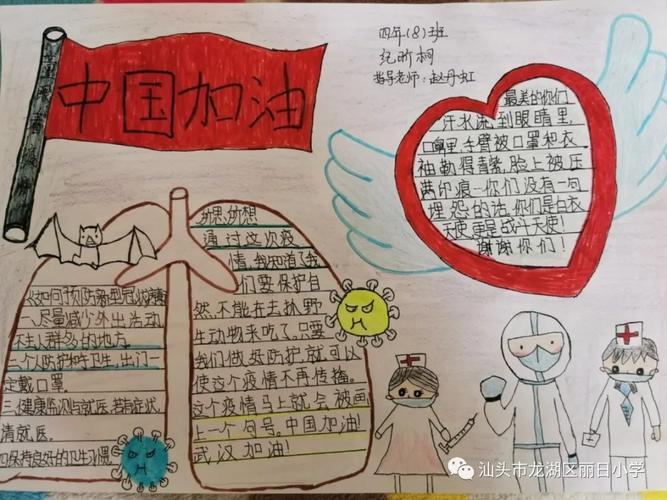 中国加油
四年(8)班
纪昕桐
指导老师:赵丹虹
最美的你们
汗水流到眼睛里,
嘴里,手臂被口罩和衣
袖勒得青紫,脸上被压
满印痕…你们没有一句
埋怨的话,你们是白衣
天使更是战斗天使!
谢谢你们!
如何预防新型冠状病毒
一尽量减少外出活动
不去人群多的地方。
二个人防护和卫生,出门一
定戴口罩
三健康监测与就医,若有症状,
请就医。
四保持良好的卫生习惯。
所思所想
通过这次疫
情,我知道了我
们要保护自
然,不能在去抓野
生动物来吃了,只要
我们做好防护,就可以
使这个疫情不再传播。
这个疫情马上就会被画
上一个句号。中国加油!
武汉加油!
汕头市龙湖区丽日小学